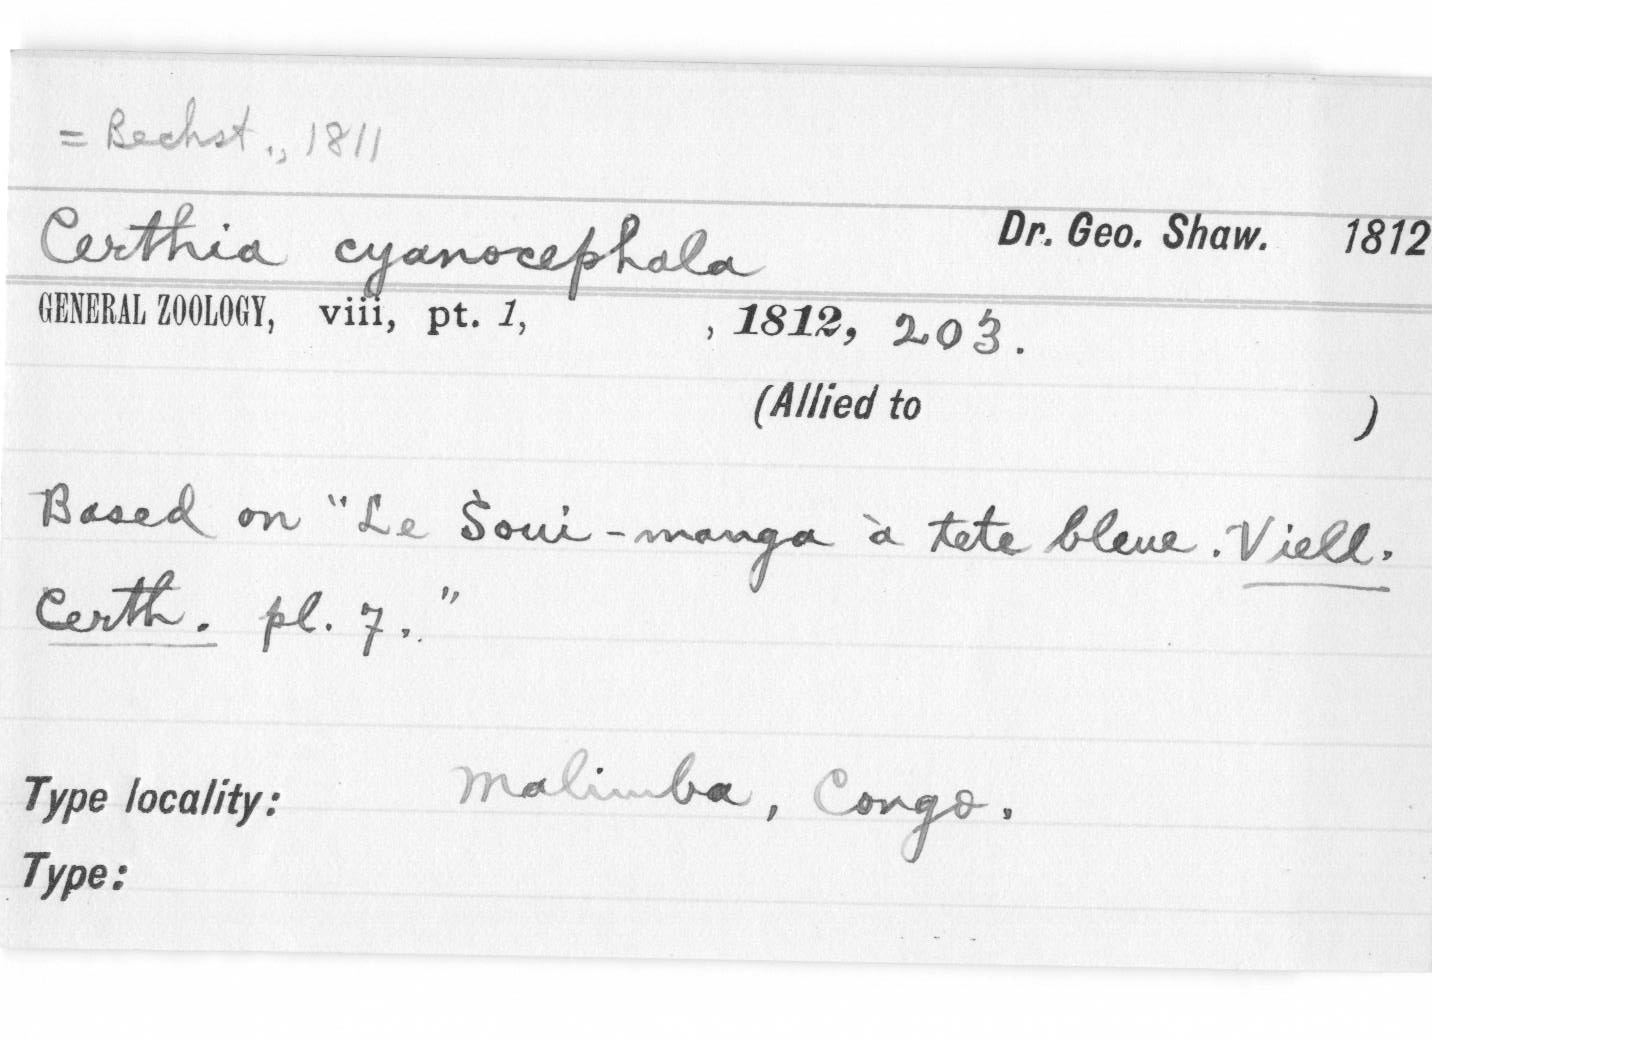 = Bechst., 1811
Certhia cyanocephala Dr. Geo. Shaw. 1812
GENERAL ZOOLOGY, viii, pt. 1, , 1812, 203.
(Allied to )
Based on "Le Soui-manga à tete bleue. Viell.
Certh. pl. 7."
Type locality: Malimba, Congo.
Type: